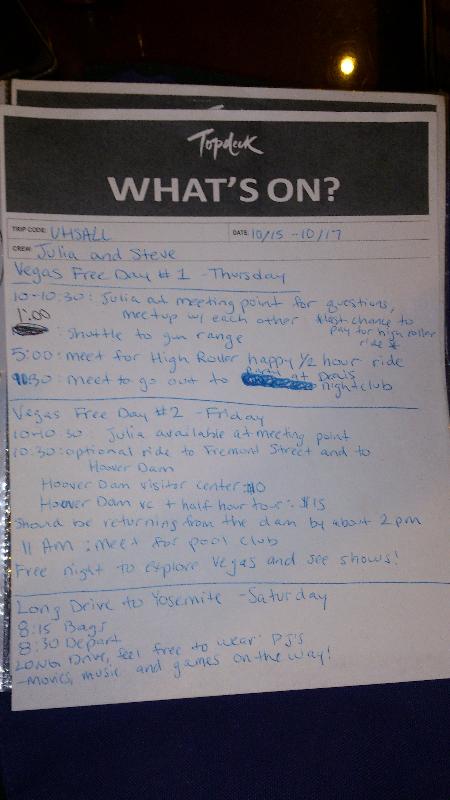 Topdeck
WHAT'S ON?
TRIP CODE: UHSALL DATE: 10/15 - 10/17
CREW: Julia and Steve
Vegas Free Day #1 - Thursday
10-10:30: Julia at meeting point for questions,
meetup w/ each other *last chance to
pay for high roller
ride *
1:00
: Shuttle to gun range
5:00: meet for High Roller happy 1/2 hour ride
:30: meet to go out to Drais
nightclub
Vegas Free Day #2 - Friday
10-10:30: Julia available at meeting point
10:30: optional ride to Fremont Street and to
Hoover Dam
Hoover Dam visitor center: $10
Hoover Dam vc + half hour tour: $15
Should be returning from the dam by about 2pm
11 AM: meet for pool club
Free night to explore Vegas and see shows!
Long Drive to Yosemite - Saturday
8:15 Bags
8:30 Depart
LONG Drive, feel free to wear PJ's
-Movies, music and games on the way!